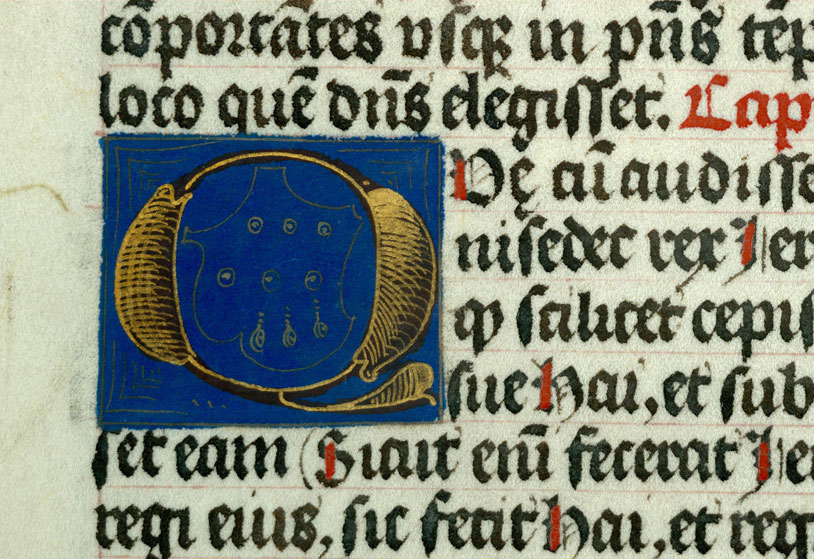 cōportātes vsqꝫ in pn̄s tēp
loco quē dn̄s elegisset. Cap
QVę cū audisse
nisedec rex Ier
ꝙ scilicet cepis
sue Hai, et sub
set eam (Sicut eni̅ fecerat Ier
regi eius, sic fecit Hai, et reg